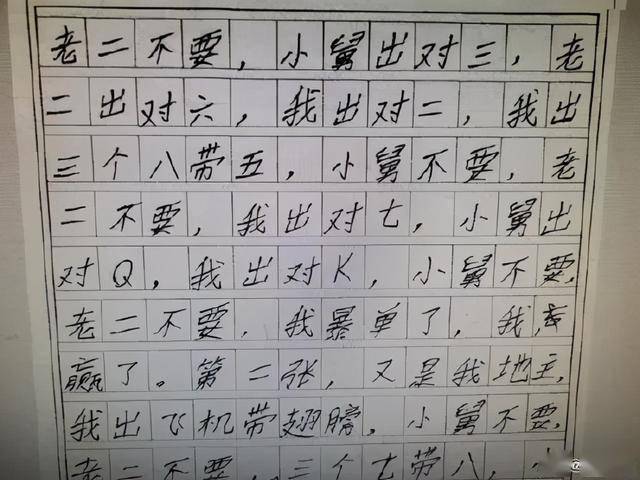 老二不要，小舅出对三，老
二出对六，我出对二，我出
三个八带五，小舅不要，老
二不要，我出对七，小舅出
对Q，我出对K，小舅不要，
老二不要，我暴单了，我
赢了。第二张，又是我地主，
我出飞机带翅膀，小舅不要，
老二不要，三个七带八，小